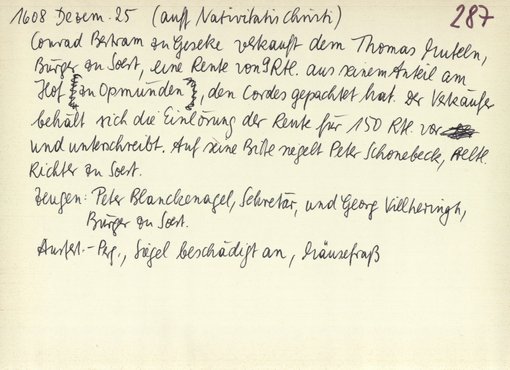 1608 Dezem. 25 (auff Nativitatis Christi) 287
Conrad Bertram zu Geseke verkauft dem Thomas
Bürger zu Soest, eine Rente von 9 Rtl. aus seinem Anteil am
Hof (zu Opmünden), den Cordes gepachtet hat. Der Verkäufer
behält sich die Einlösung der Rente für 150 Rtl. vor
und unterschreibt. Auf seine Bitte siegelt Peter Schonebeck,
Richter zu Soest.
Zeugen: Peter Blanckenagel, Sekretär, und Georg Villheringh,
Bürger zu Soest.
Ausfert.-Perg., Siegel beschädigt an, Mäusefraß